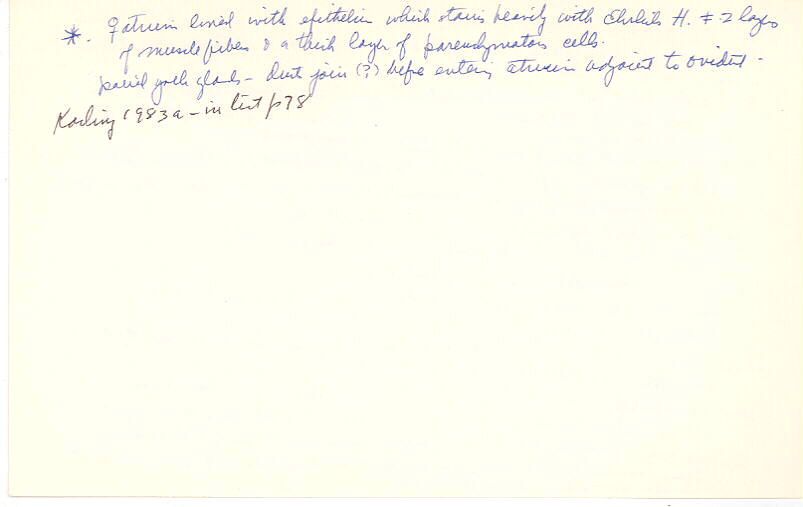 *. ♀ atrium lined with epithelium which stains heavily with Ehrlichs H. + 2 layers
of muscle fibers & a thick layer of parenchymatous cells.
paired yolk glands – ducts join (?) before entering atrium adjacent to oviduct –
Karling 1983a – in text p78